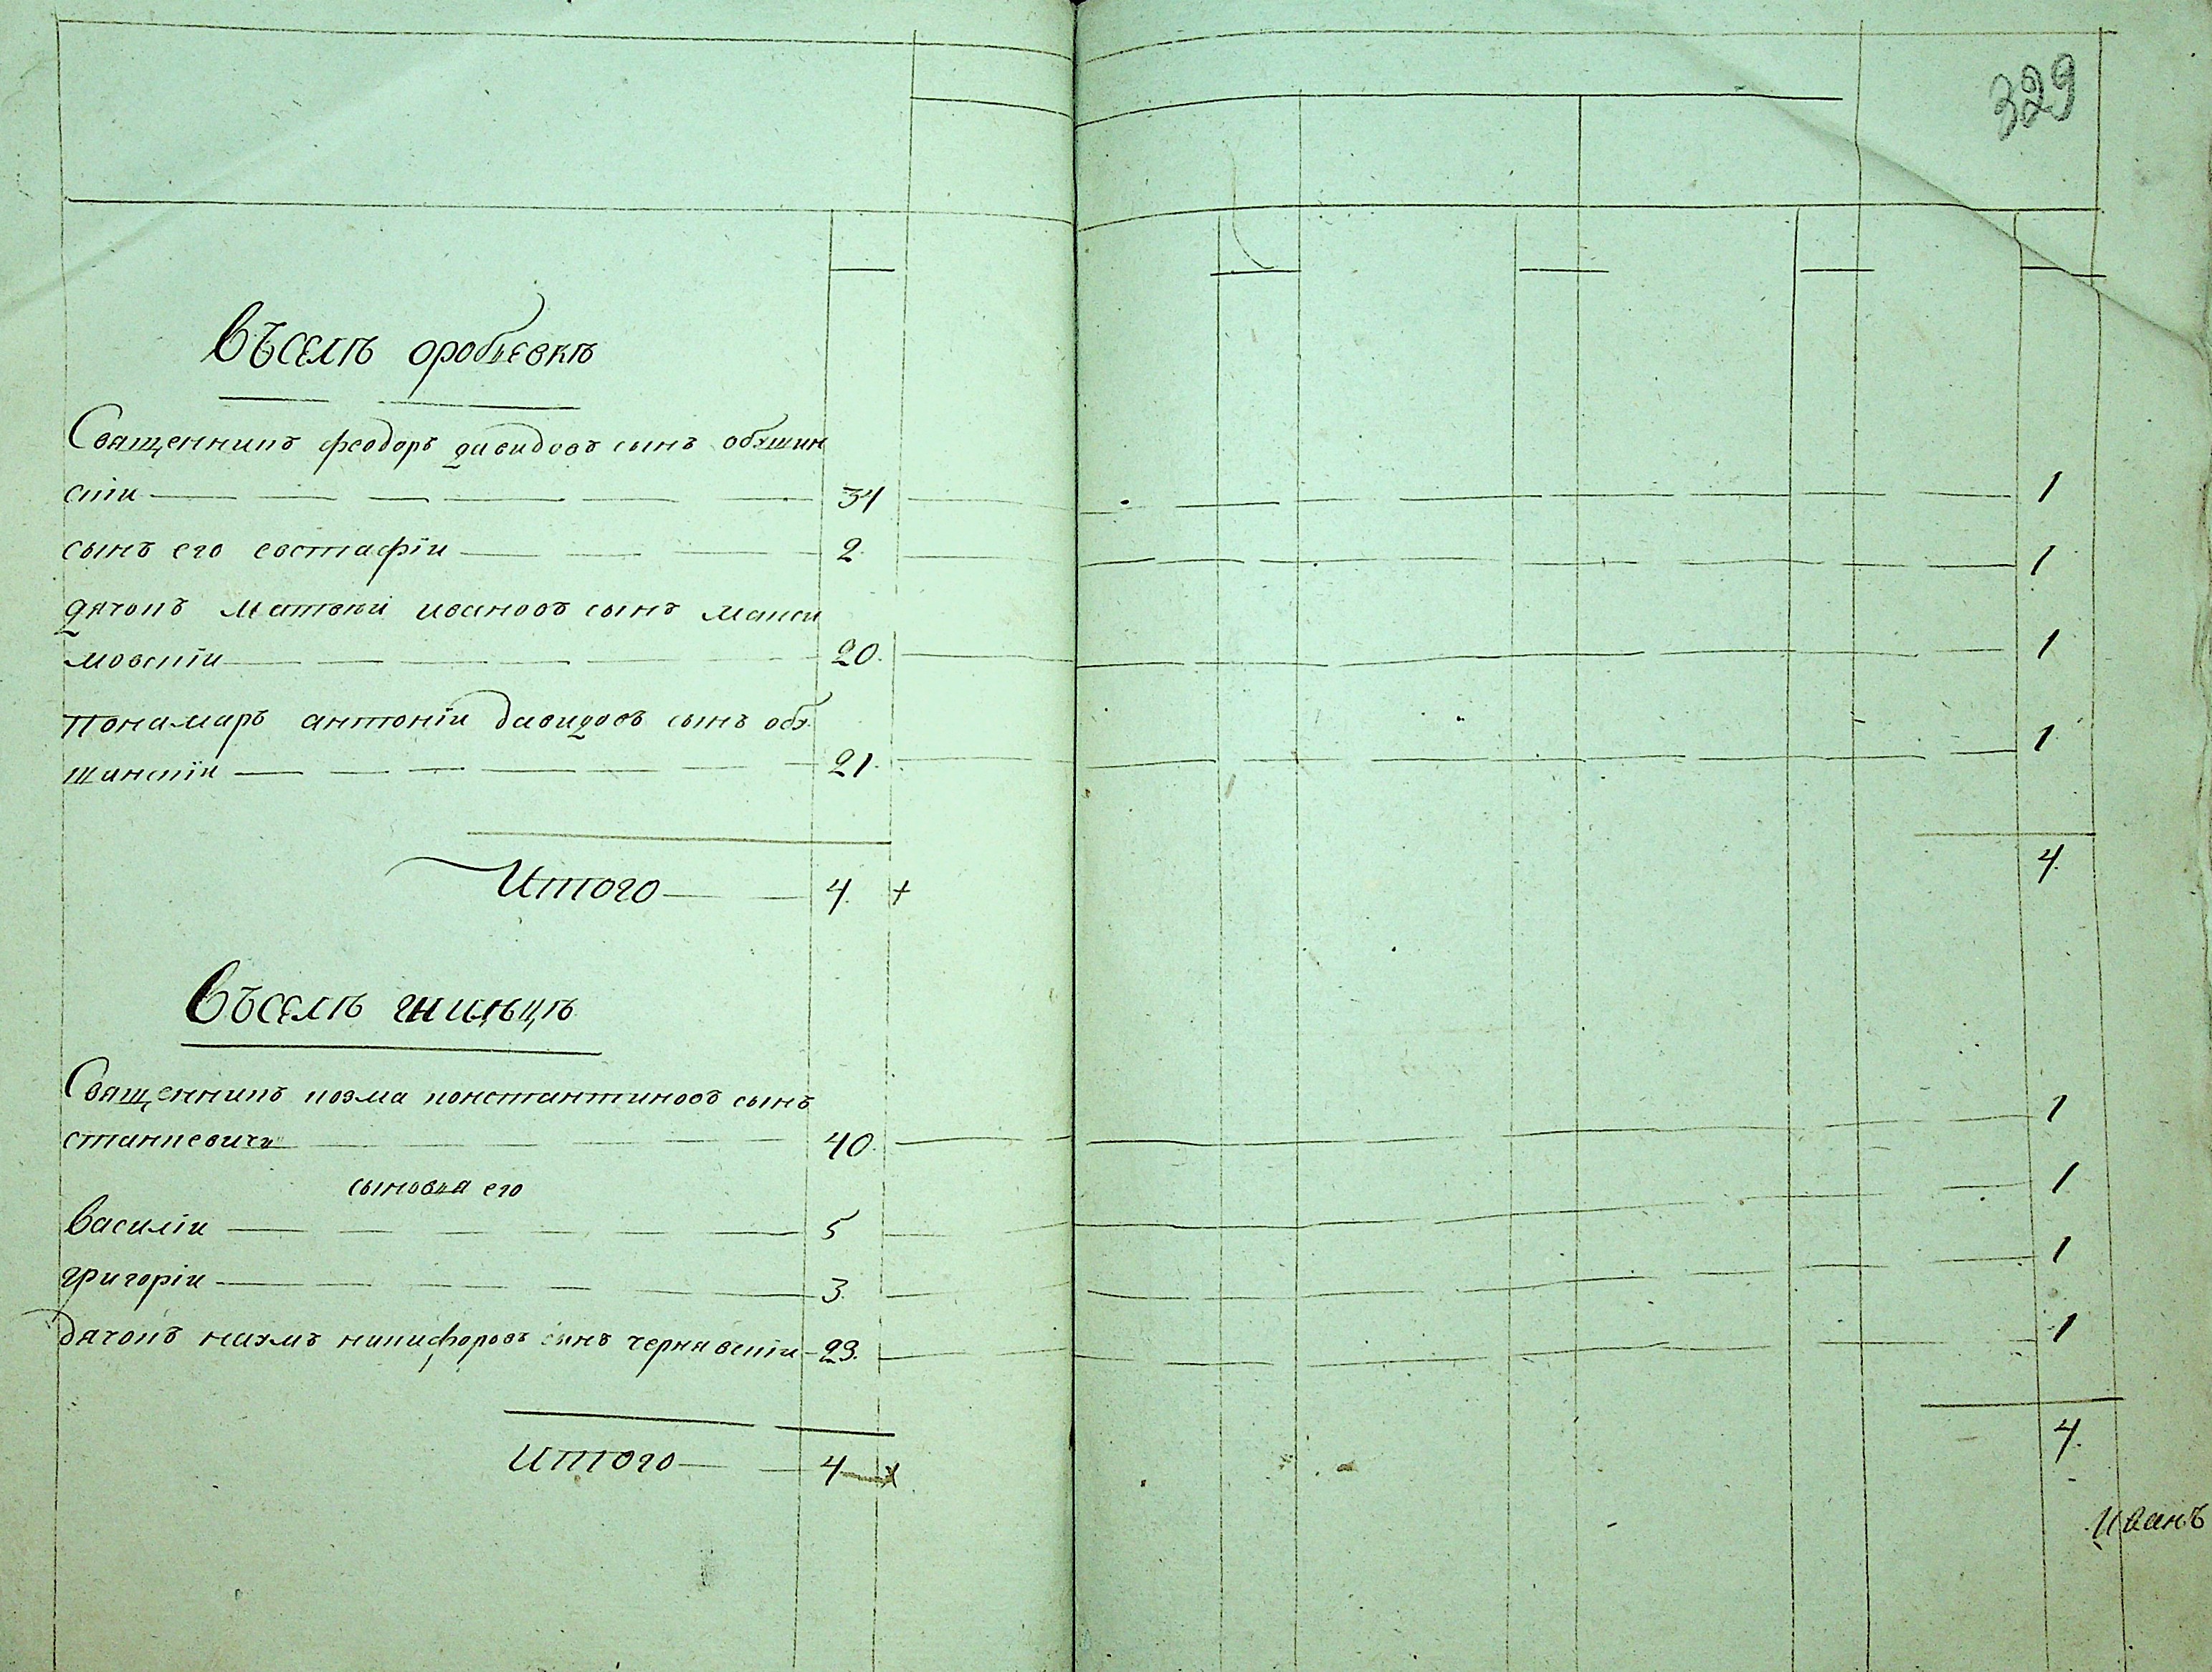 329
Въ селѣ оробьевкѣ
Священникъ феодоръ давидовъ сынъ обѣшин
скіи 34 1
сынъ его евстафіи 2 1
дячокъ матвѣй ивановъ сынъ макси
мовскіи 20. 1
понамарь антоніи давидовъ сынъ
21. 1
Итого 4. + 4.
Въ селѣ гнилѣцѣ
Священникъ козма константиновъ сынъ
станкевичъ 40. 1
сыновья его
василіи 5 1
григоріи 3. 1
дячокъ наумъ никифоровъ сынъ чернявскіи 23. 1
Итого 4 x 4.
Иванъ